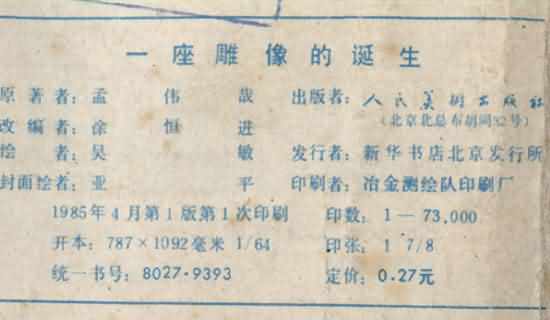 一座雕像的诞生
原著者：孟伟哉 出版者：人民美术出版社
（北京北总布胡同32号）
改编者：徐恒进
绘者：吴敏 发行者：新华书店北京发行所
封面绘者：亚平 印刷者：冶金测绘队印刷厂
1985年4月第1版第1次印刷 印数：1—73,000
开本：787×1092毫米 1/64 印张：1 7/8
统一书号：8027·9393 定价：0.27元